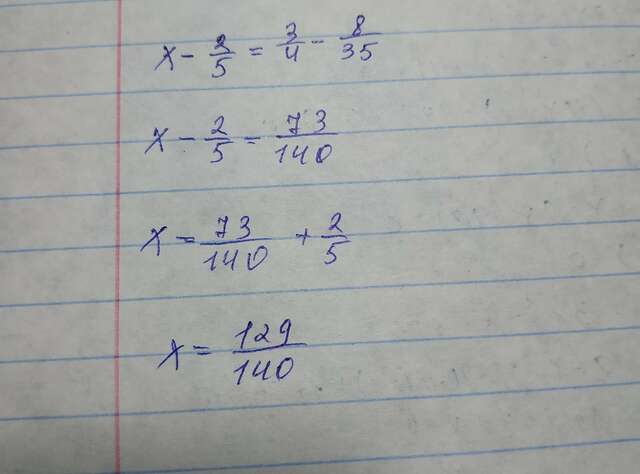 x - 2/5 = 3/4 - 8/35
x - 2/5 = 73/140
x = 73/140 + 2/5
x = 129/140